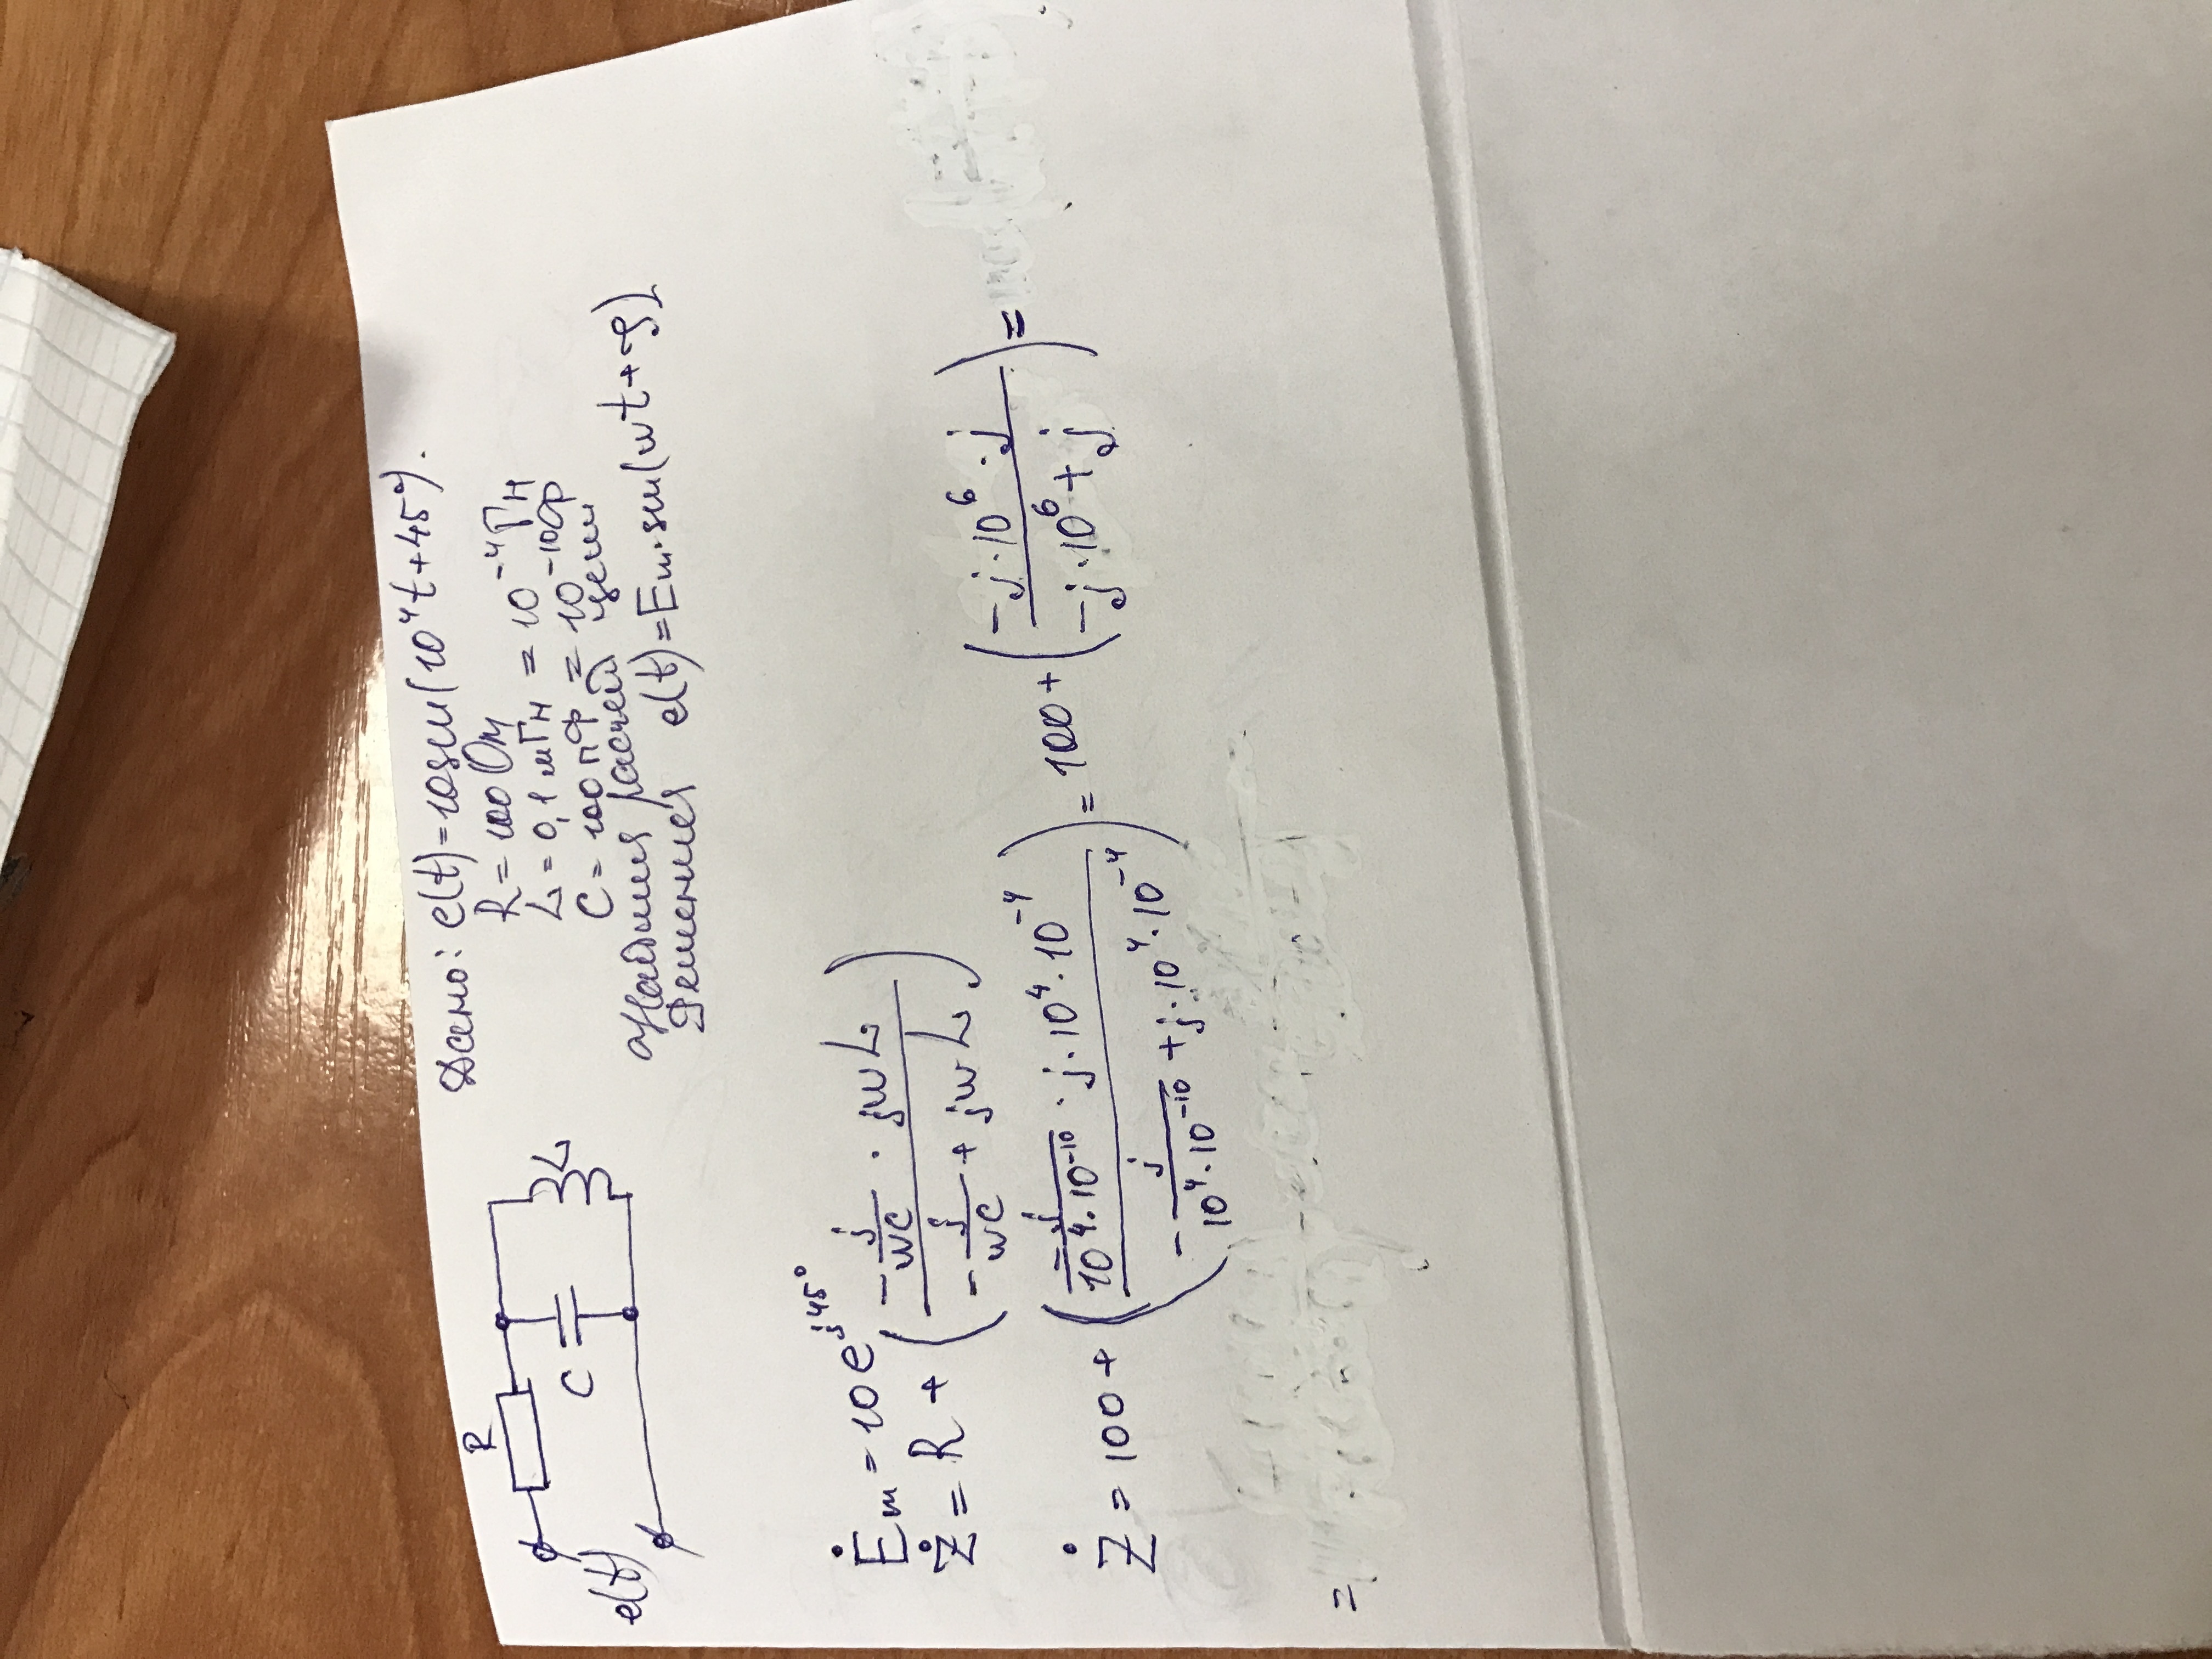 Дано: e(t)=10sin(10⁴t+45°).
R=100 Ом
L=0,1 мГн = 10⁻⁴ Гн
C=100 пФ = 10⁻¹⁰ Ф
расчёт цепи
Решение e(t)=Em·sin(ωt+φ)
R
C
L
e(t)
Ėm = 10e^(j45°)
Ż = R + ((-j/ωC · jωL)/(-j/ωC + jωL))
Ż = 100 + ((-j/(10⁴·10⁻¹⁰) · j·10⁴·10⁻⁴)/(-j/(10⁴·10⁻¹⁰) + j·10⁴·10⁻⁴)) = 100 + ((-j·10⁶·j)/(-j·10⁶+j)) =
=